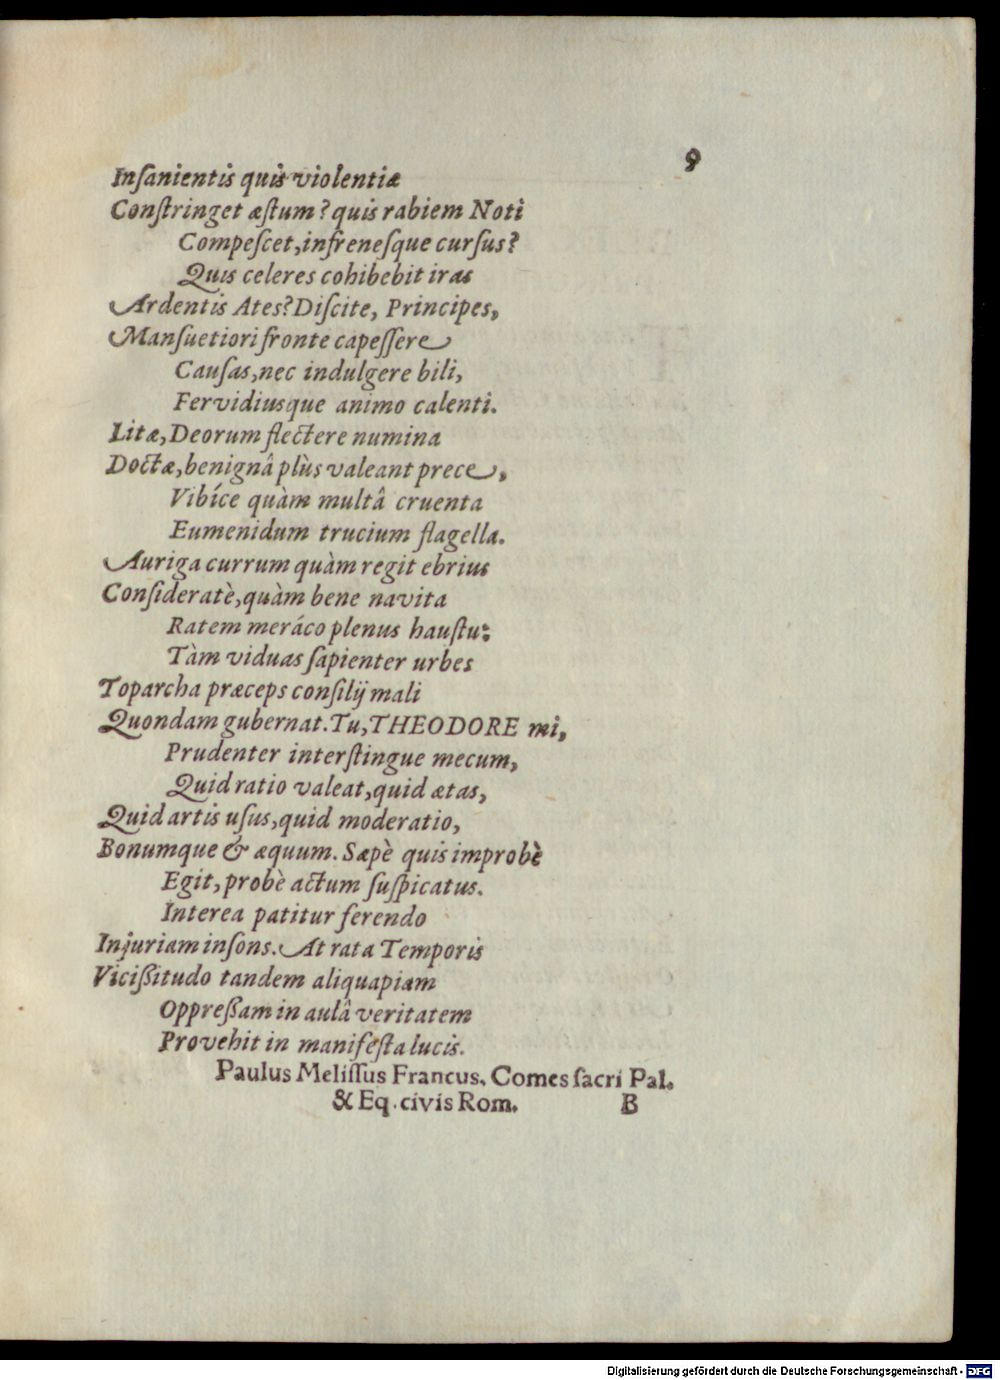 9
Inſanientis quis violentiæ
Conſtringet æſtum? quis rabiem Noti
Compeſcet, infreneſque curſus?
Quis celeres cohibebit iras
Ardentis Ates? Diſcite, Principes,
Manſuetiori fronte capeſſere
Cauſas, nec indulgere bili,
Fervidiusque animo calenti.
Litæ, Deorum flectere numina
Doctæ, benignâ plùs valeant prece,
Vibíce quàm multâ cruenta
Eumenidum trucium flagella.
Auriga currum quàm regit ebrius
Conſideratè, quàm bene navita
Ratem meráco plenus hauſtu:
Tàm viduas ſapienter urbes
Toparcha præceps conſilij mali
Quondam gubernat. Tu, THEODORE mi,
Prudenter interſtingue mecum,
Quid ratio valeat, quid ætas,
Quid artis uſus, quid moderatio,
Bonumque & æquum. Sæpè quis improbè
Egit, probè actum ſuſpicatus.
Interea patitur ferendo
Injuriam inſons. At rata Temporis
Vicißitudo tandem aliquapiam
Oppreßam in aulâ veritatem
Provehit in manifeſta lucis.
Paulus Meliſſus Francus. Comes ſacri Pal.
& Eq. civis Rom. B
Digitalisierung gefördert durch die Deutsche Forschungsgemeinschaft - DFG